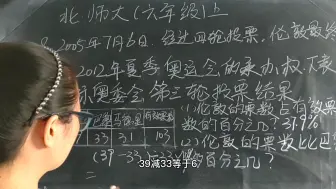 北师大(六年级)上
2005年7月6日,经过四轮投票,伦敦最终
2012年夏季奥运会的承办权.下表
际奥委会第三轮投票结果
(1)伦敦的票数占有效票
数的百分之几? 37.9%
33 31 103
(2)伦敦的票数比巴
(39-33)
的百分之几?
=
39减33等于6,